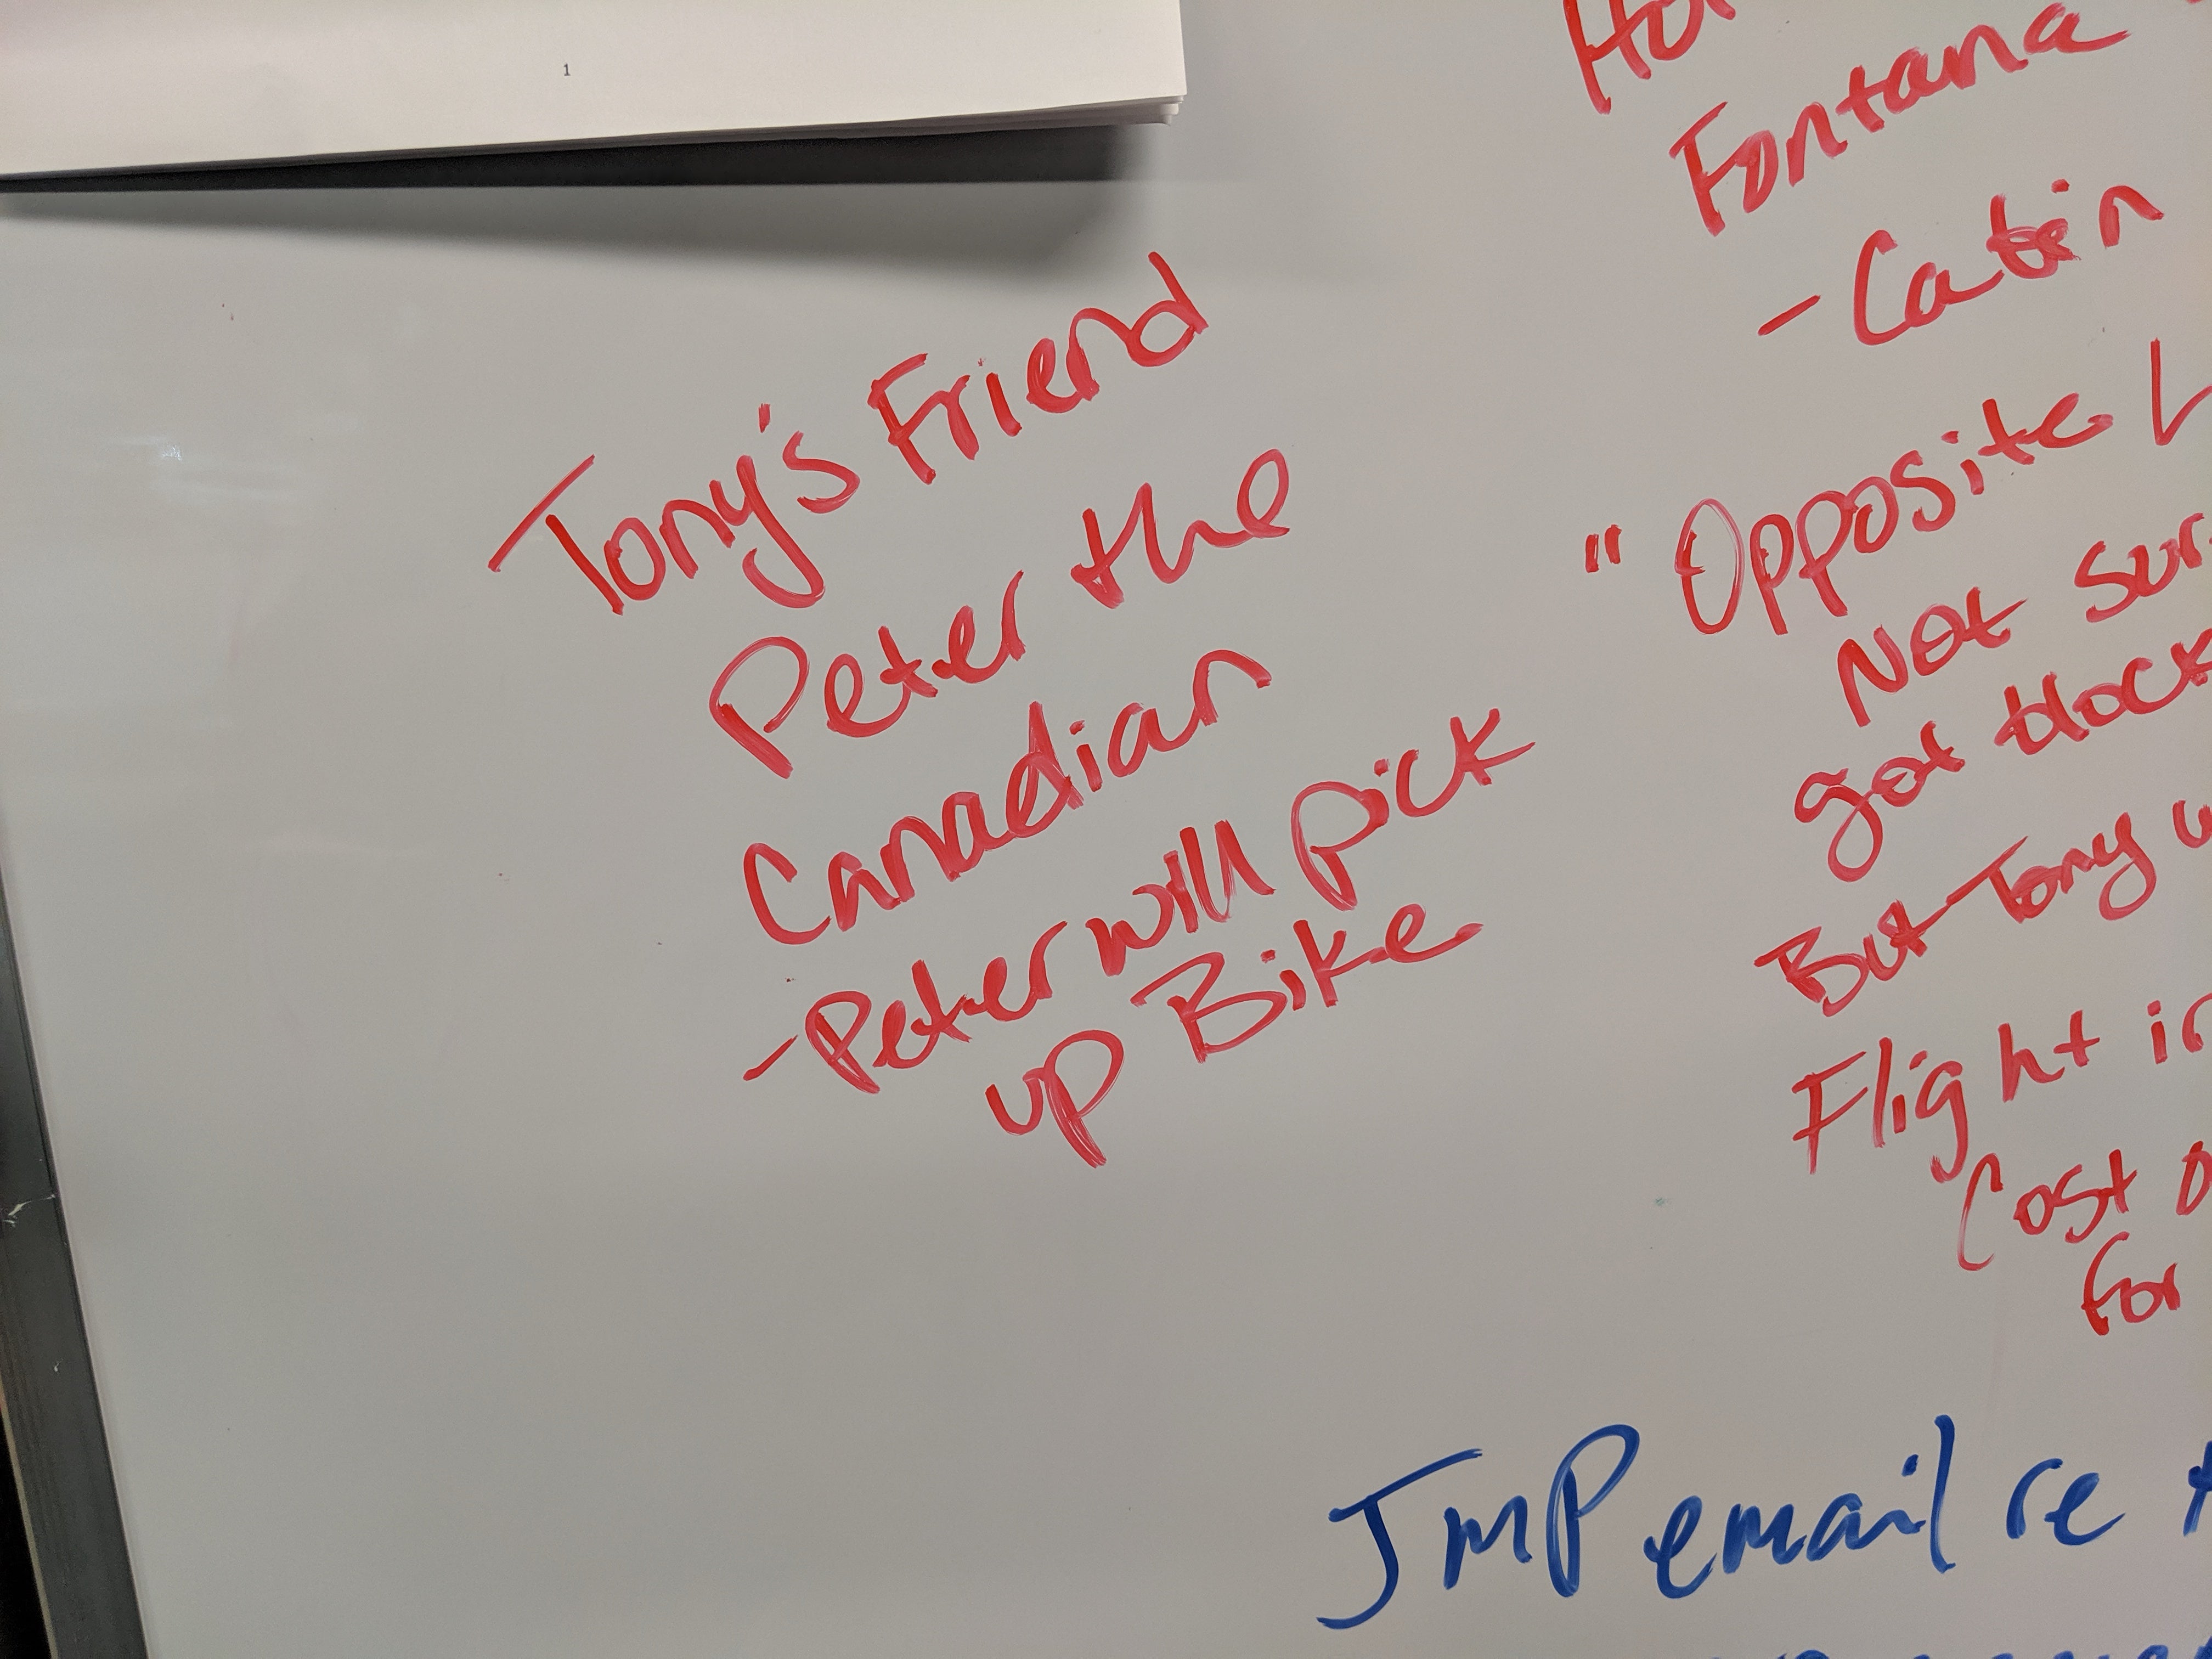 1
Tony's Friend
Peter the
Canadian
-Peter will pick
up Bike
Fontana
-Cabin
"Opposite
Not
got
But Tony
Flight
Cost
for
JMP email re